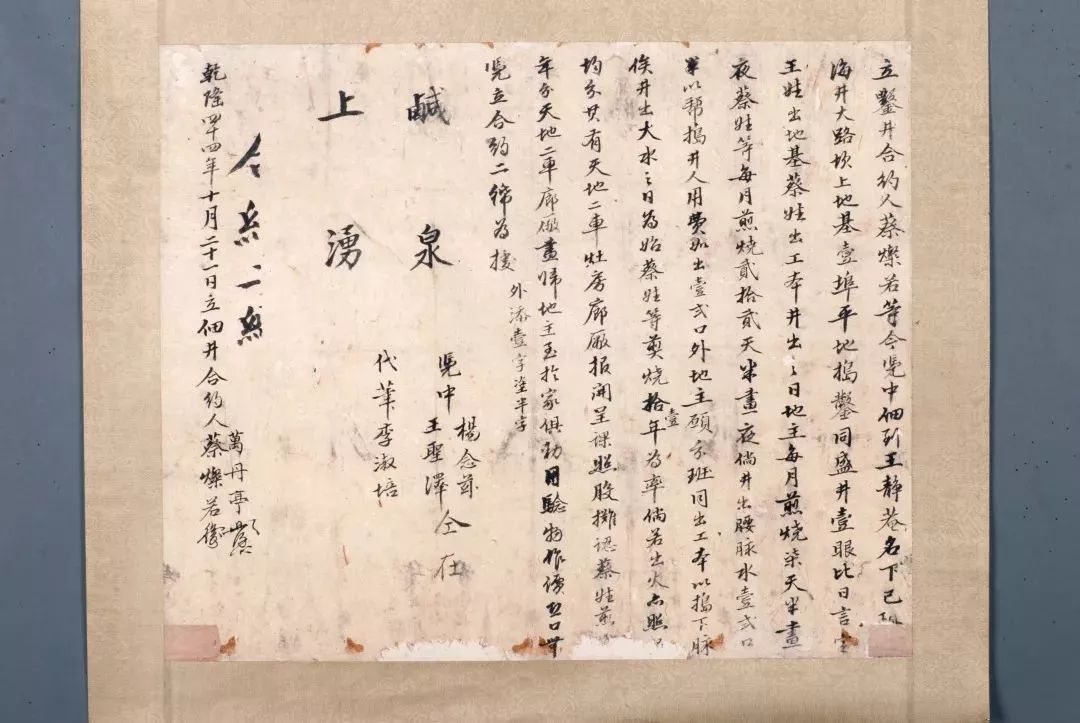 立鑿井合約人蔡燦若等今凴中佃到王静菴名下已
海井大路坎上地基壹埠平地搗鑿同盛井壹眼比日言定
王姓出地基蔡姓出工本井出之日地主每月煎燒柒天半晝
夜蔡姓等每月煎燒貳拾貳天半晝夜倘井出腰脉水壹弍口
以帮搗井人用費如出壹弍口外地主願分班同出工本以搗下脉
俟井出大水之日為始蔡姓等煎燒拾壹年為率倘若出火亦照
均分其有天地二車灶房廊廠报開呈课照股攤認蔡姓煎
年分天地二車廊廠盡歸地主至於家俱動用騐物作價
凴立合約二紙為據
外添壹字塗半字
鹹泉
上湧
凴中 楊念慈 王聖澤 仝在
代筆李淑培
合
乾隆四十四年十月二十一日立佃井合約人蔡燦若 萬丹亭